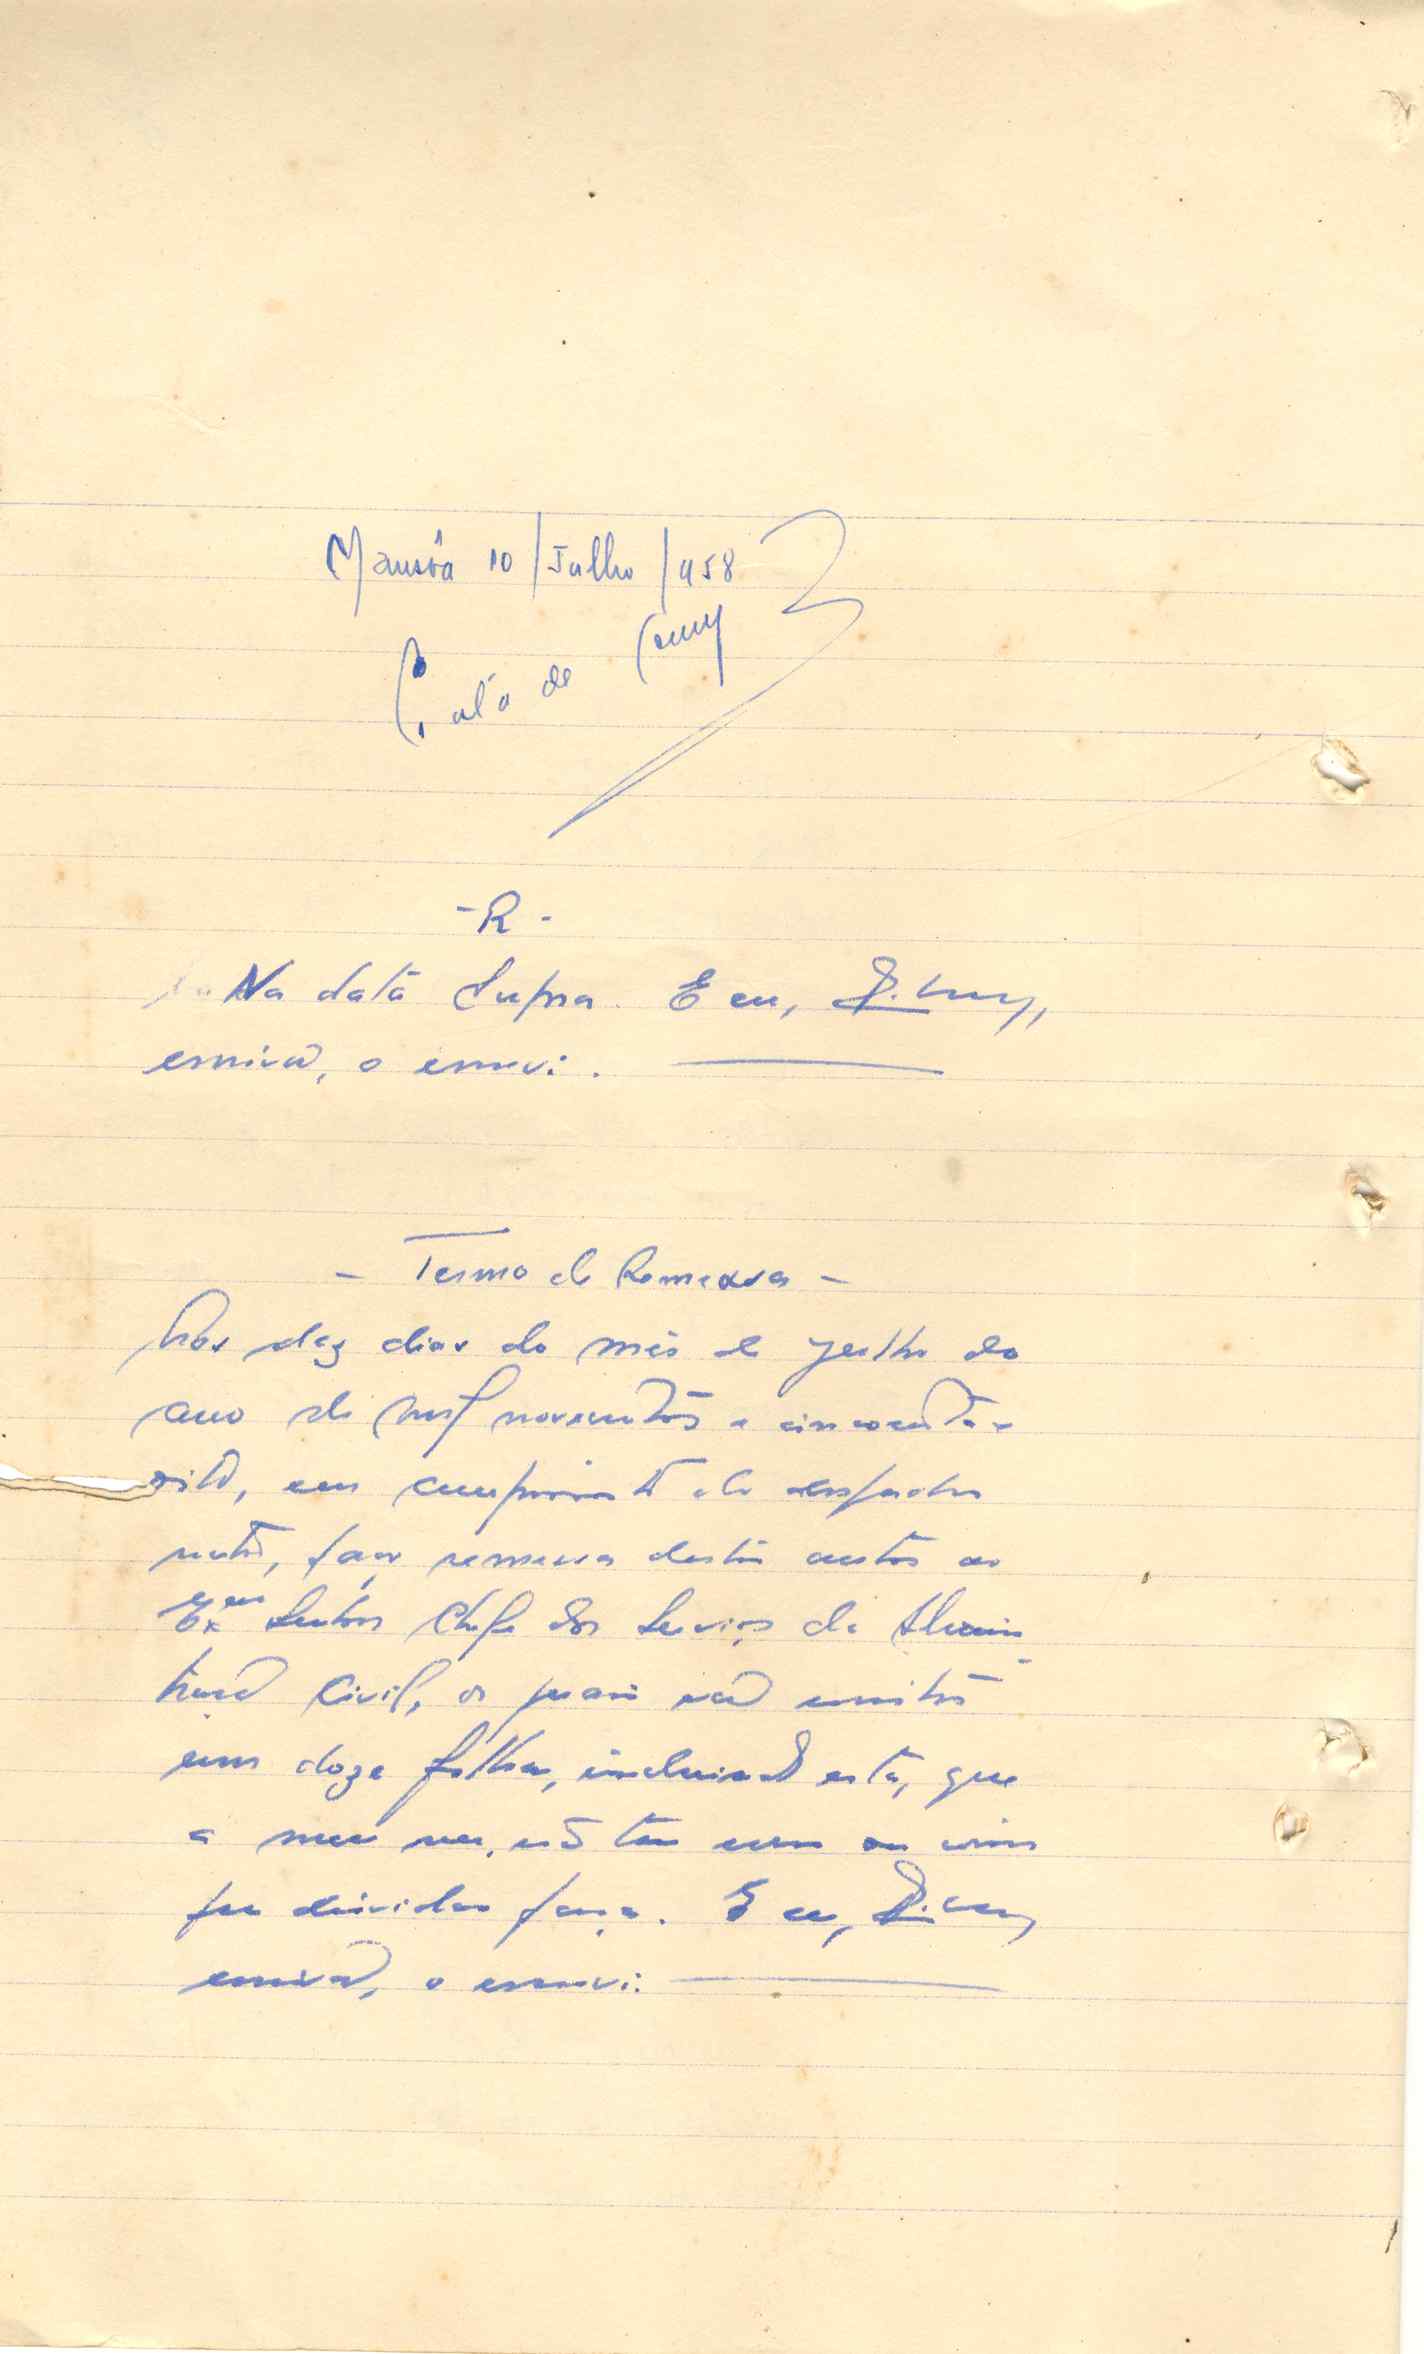 Mansôa 10/Julho/958
de
- R -
Na data supra. E eu,
escrivão, o escrevi.
- Termo de Remessa -
Aos dez dias do mês de julho do
ano de mil novecentos e cincoenta e
oito, em cumprimento do despacho
retro, faço remessa destes autos ao
Exmo Senhor Chefe dos Serviços de Admin
tração Civil, os quais vão escritos
em doze folhas, incluindo esta, que
a meu ver, não tem cousa que
dúvidas faça. E eu,
escrivão, o escrevi.